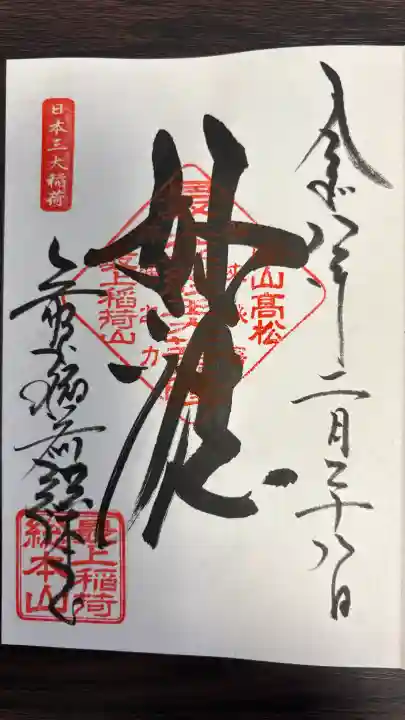 令和八年二月二十八日
妙法
日本三大稲荷
山高松
最上稲荷山
最上稲荷総本山
最上稲荷
総本山